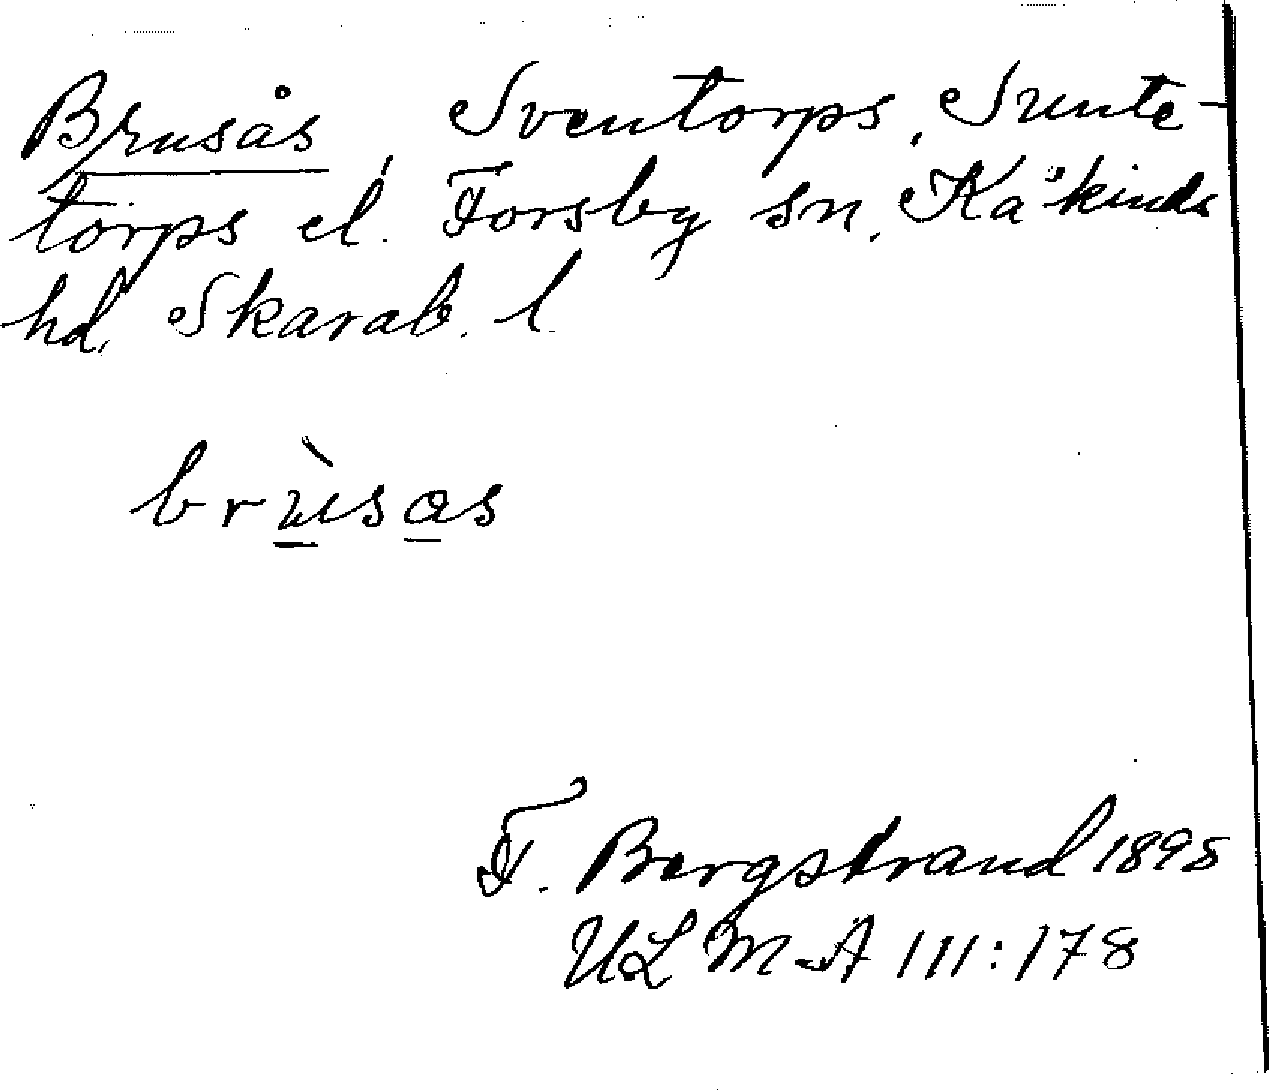 Brusås, Sventorps, Sunte-
torps el. Forsby sn, Kåkinds
hd, Skarab. l
brùsas
F. Bergstrand 1898
ULMA 111:178